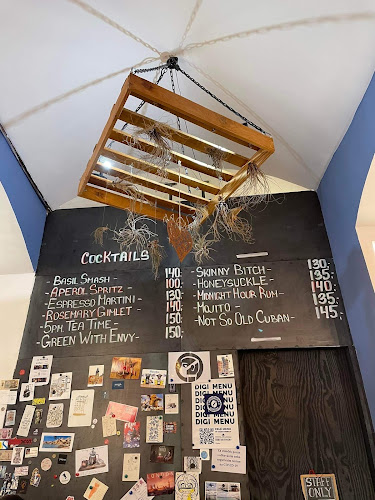 COCKTAILS
BASIL SMASH - 140.-
APEROL SPRITZ - 100.-
ESPRESSO MARTINI - 130.-
ROSEMARY GIMLET - 150.-
5PM TEA TIME - 150.-
GREEN WITH ENVY - 150.-
SKINNY BITCH - 130.-
HONEYSUCKLE - 135.-
MIDNIGHT HOUR RUM - 140.-
MOJITO - 135.-
NOT SO OLD CUBAN - 145.-
DIGI MENU
DIGI MENU
STAFF
ONLY